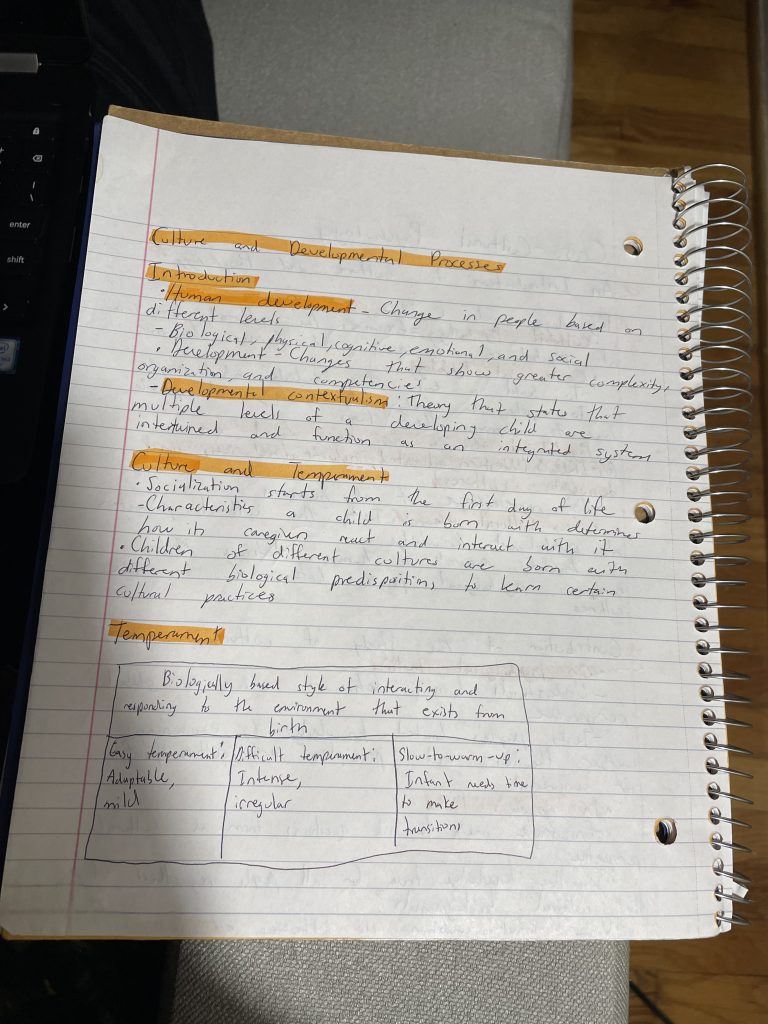 enter
shift
Culture and Developmental Processes
Introduction
• Human development - Change in people based on
different levels
- Biological, physical, cognitive, emotional, and social
• Development - Changes that show greater complexity,
organization, and competencies
- Developmental contextualism: Theory that states that
multiple levels of a developing child are
intertwined and function as an integrated system
Culture and Temperament
• Socialization starts from the first day of life
- Characteristics a child is born with determines
how its caregivers react and interact with it
• Children of different cultures are born with
different biological predispositions to learn certain
cultural practices
Temperament
Biologically based style of interacting and
responding to the environment that exists from
birth
Easy temperament:
Adaptable,
mild
Difficult temperament:
Intense,
irregular
Slow-to-warm-up:
Infant needs time
to make
transitions